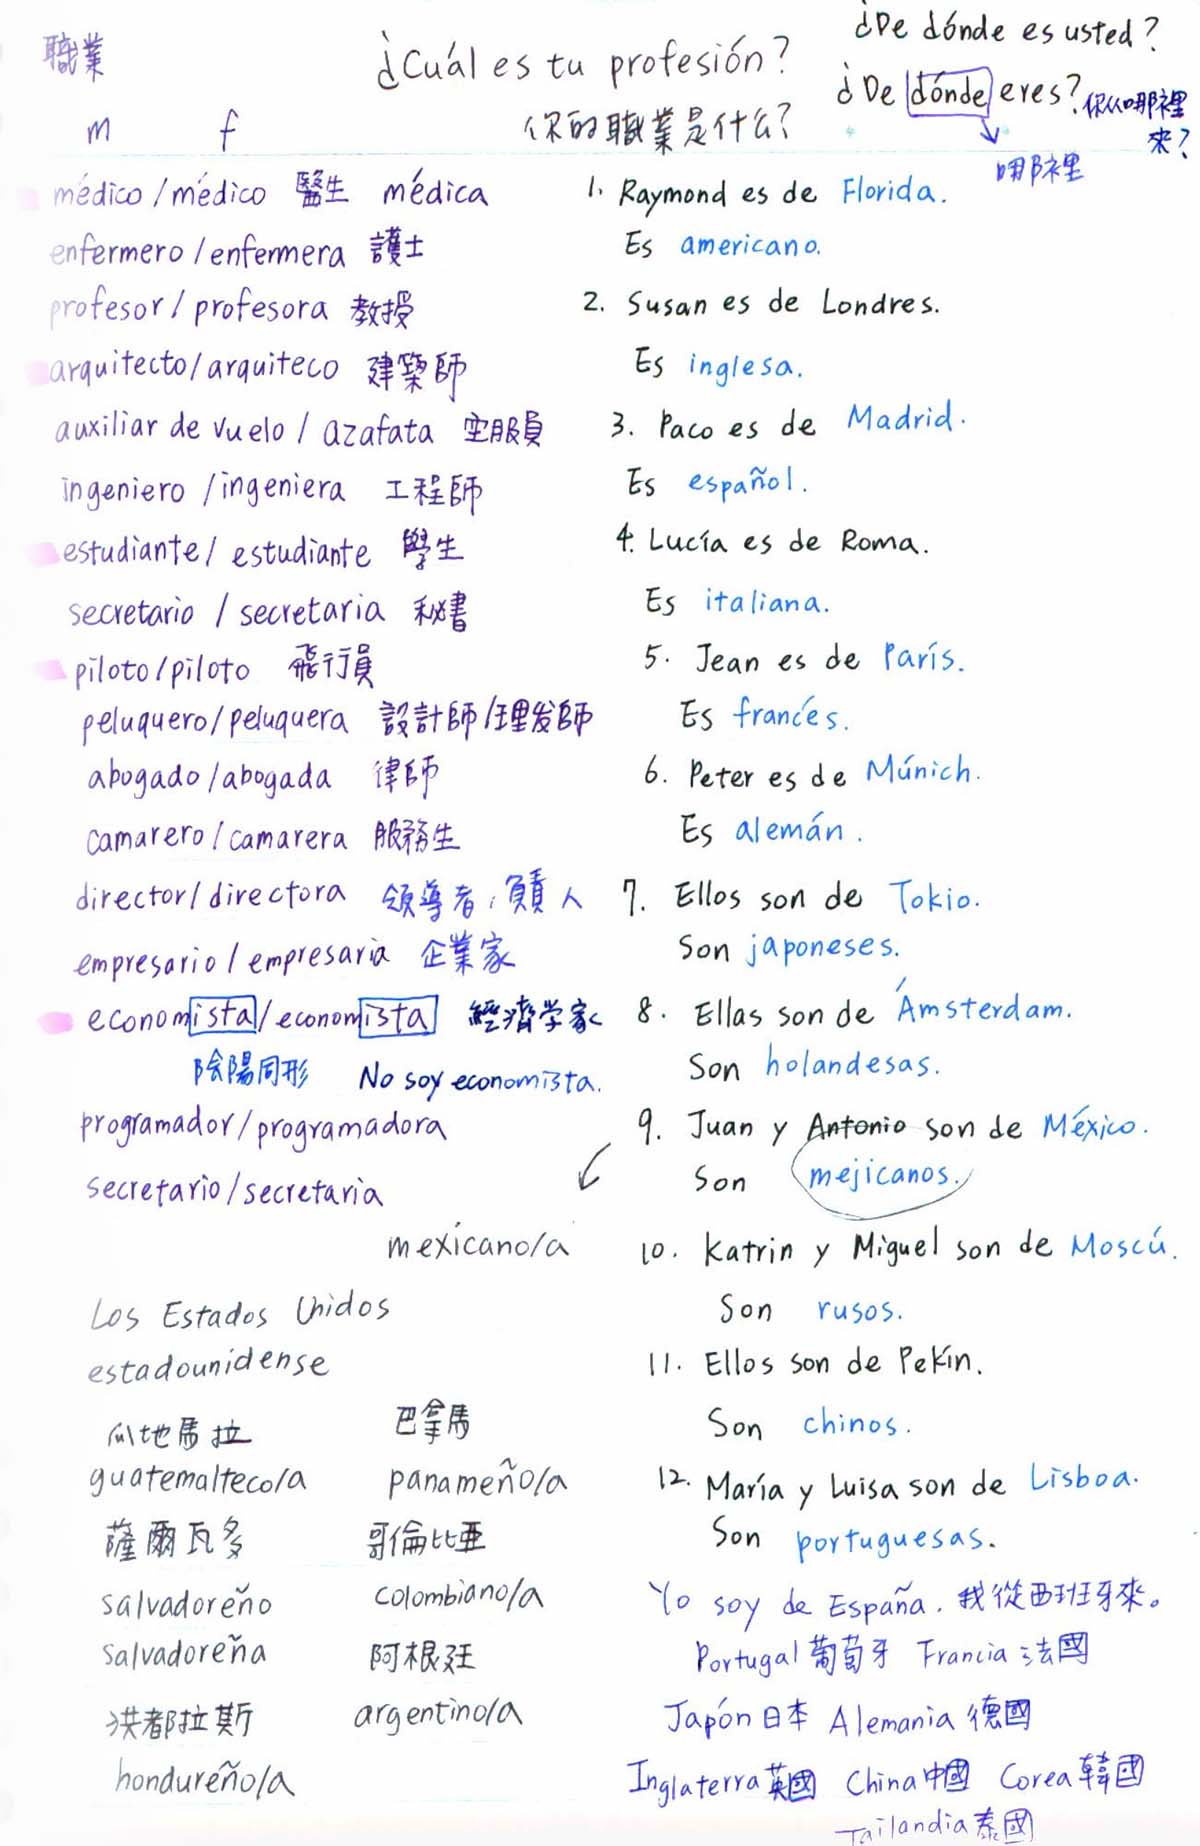 職業
m f
médico / médico 醫生 médica
enfermero / enfermera 護士
profesor / profesora 教授
arquitecto / arquiteco 建築師
auxiliar de vuelo / azafata 空服員
ingeniero / ingeniera 工程師
estudiante / estudiante 學生
secretario / secretaria 秘書
piloto / piloto 飛行員
peluquero / peluquera 設計師/理发師
abogado / abogada 律師
camarero / camarera 服務生
director / directora 領導者,負責人
empresario / empresaria 企業家
economista / economista 經濟学家
陰陽同形 No soy economista.
programador / programadora
secretario / secretaria
mexicano/a
Los Estados Unidos
estadounidense
瓜地馬拉 巴拿馬
guatemalteco/a panameño/a
薩爾瓦多 哥倫比亞
salvadoreño colombiano/a
salvadoreña 阿根廷
洪都拉斯 argentino/a
hondureño/a
¿Cuál es tu profesión?
你的職業是什么?
¿De dónde es usted?
¿De dónde eres? 你从哪裡
來?
哪裡
1. Raymond es de Florida.
Es americano.
2. Susan es de Londres.
Es inglesa.
3. Paco es de Madrid.
Es español.
4. Lucía es de Roma.
Es italiana.
5. Jean es de París.
Es francés.
6. Peter es de Múnich.
Es alemán.
7. Ellos son de Tokio.
Son japoneses.
8. Ellas son de Ámsterdam.
Son holandesas.
9. Juan y Antonio son de México.
Son mejicanos.
10. Katrin y Miguel son de Moscú.
Son rusos.
11. Ellos son de Pekín.
Son chinos.
12. María y Luisa son de Lisboa.
Son portuguesas.
Yo soy de España. 我從西班牙來。
Portugal 葡萄牙 Francia 法國
Japón 日本 Alemania 德國
Inglaterra 英國 China 中國 Corea 韓國
Tailandia 泰國